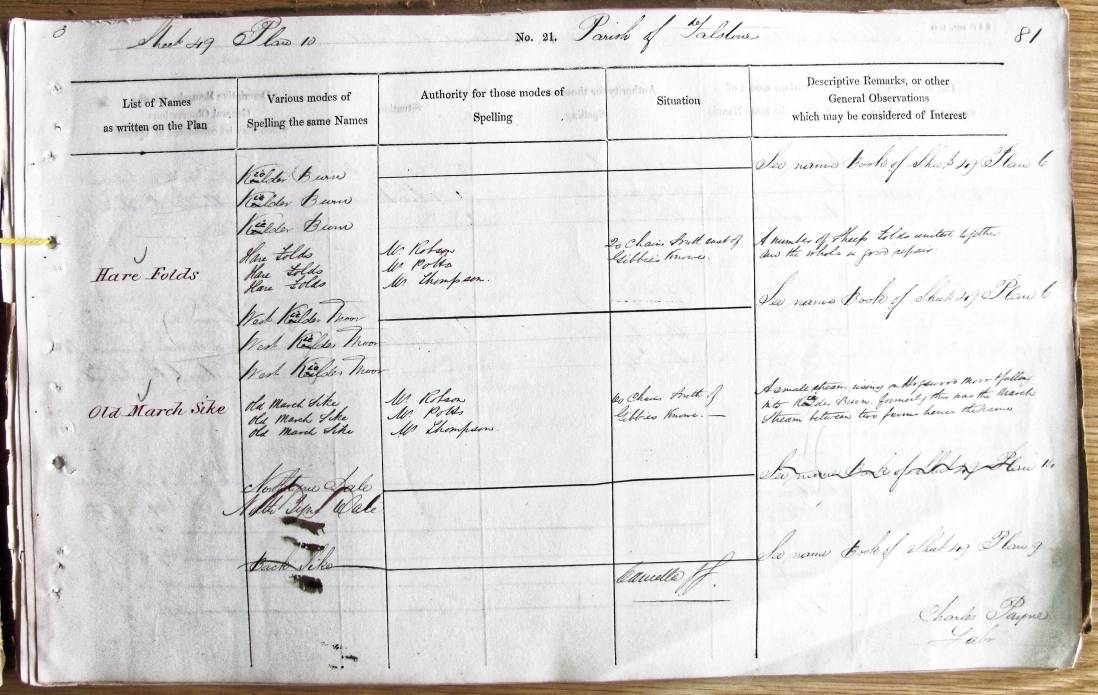 Sheet 49 Plan 10 No. 21. Parish of Falstone 81
List of Names
as written on the Plan
Various modes of
Spelling the same Names
Authority for those modes of
Spelling
Situation
Descriptive Remarks, or other
General Observations
which may be considered of Interest
Kielder Burn See name Book of Sheet 49 Plan 6
Kielder Burn
Kielder Burn
Hare Folds
Hare Folds Mr. Robson 20 Chains South east of A number of Sheep Folds united together
Hare Folds Mr. Potts Gibbies Knowe. and the whole in good repair
Hare Folds Mr. Thompson.
West Kielder Moor See name Book of Sheet 49 Plan 6
West Kielder Moor
West Kielder Moor
Old March Sike
Old March Sike Mr. Robson 60 Chains South of A small stream rising on Hopswood Moor & falling
Old March Sike Mr. Potts Gibbies Knowe. into Kielder Burn. formerly this was the March
Old March Sike Mr. Thompson. Stream between two farms hence the name
North Tyne Dale See name Book of Sheet 49 Plan 10
North Tyne Dale
Back Sike See name Book of Sheet 49 Plan 9
Charles Payne